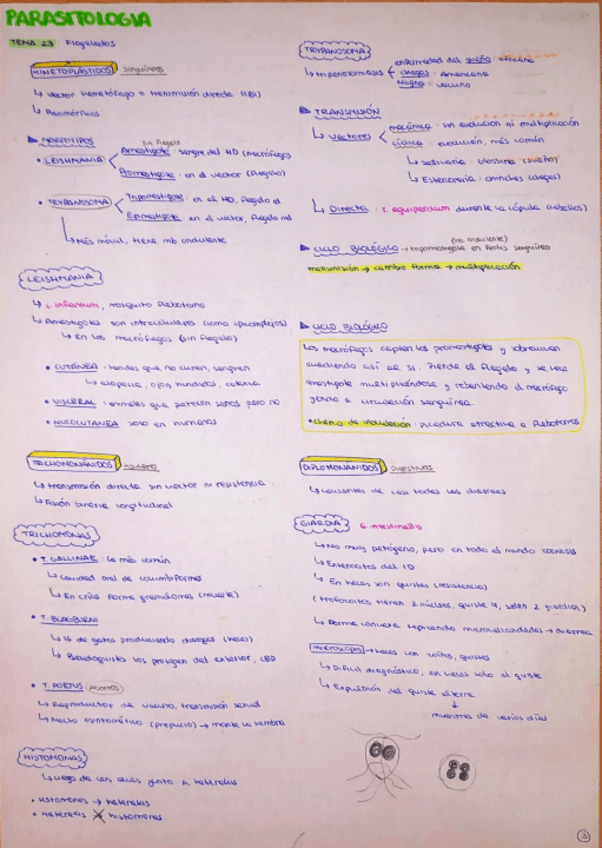 PARASITOLOGIA
TEMA 23 Flagelados
KINETOPLÁSTIDOS sanguíneos
↳ Vector hematófago o transmisión directa (
↳ Pleomórficos
▶ MORFOTIPOS
• LEISHMANIA
sin flagelo
Amastigote: sangre del HD (macrófagos)
Promastigote: en el vector (flagelo)
• TRYPANOSOMA
Tripomastigote: en el HD, flagelo
Epimastigote: en el vector, flagelo
↳ Más móvil, tiene mb ondulante
LEISHMANIA
↳ L. infantum, mosquito flebotomo
↳ Amastigotes son intracelulares (como apicomplejos)
↳ En los macrófagos (sin flagelo)
• CUTÁNEA: heridas que no curan, sangran
↳ alopecia, ojos hundidos,
• VISCERAL: animales que parecen sanos pero no
• MUCOCUTANEA: solo en humanos
TRICHOMONÁNIDOS
↳ transmisión directa sin vector ni resistencia
↳ Fisión binaria longitudinal
TRICHOMONAS
• T. GALLINAE: la más común
↳ Cavidad oral de columbiformes
↳ En crías forma granulomas (muerte)
• T. BLAGBURNI
↳ IG de gatos produciendo diarreas (heces)
↳ Pseudoquistes los protegen del exterior,
• T. FOETUS abortos
↳ Reproductor de vacuno, transmisión sexual
↳ Macho asintomático (prepucio) → monta la hembra
HISTOMONAS
↳ Ciego de las aves junto a heterakis
• Histomonas → heterakis
• Heterakis ✗ histomonas
TRYPANOSOMA
↳ tripanosomiasis
enfermedad del sueño: africana
chagas: Americana
Nagana: vacuno
▶ TRANSMISIÓN
↳ Vectores
mecánica: sin evolución ni multiplicación
cíclica: evolución, más común
↳ Salivaria: glossina (sueño)
↳ Estercoraria: chinches (chagas)
↳ Directa: T. equiperdum durante la cópula (caballos)
▶ CICLO BIOLÓGICO → tripomastigote en torrente sanguíneo
(mb ondulante)
transmisión → cambio forma → multiplicación
▶ CICLO BIOLÓGICO
Los macrófagos captan los promastigotes y sobreviven
evadiendo así al SI. Pierde el flagelo y se hace
amastigote multiplicándose y reventando el macrófago
yendo a circulación sanguínea.
• Chancro de inoculación: picadura atractiva a flebotomos
DIPLOMONÁNIDOS Digestivos
↳ Causantes de casi todas las diarreas
GIARDIA G. intestinalis
↳ No muy patógeno, pero en todo el mundo zoonosis
↳ Enterocitos del ID
↳ En heces son quistes (resistencia)
(trofozoitos tienen 2 núcleos, quiste 4, salen 2 giardias)
↳ Forma convexa tapizando microvellosidades → diarrea
microscopio → heces con trofos, quistes
↳ Difícil diagnóstico, en heces solo el quiste
↳ Expulsión del quiste alterna
↓
muestras de varios días
3